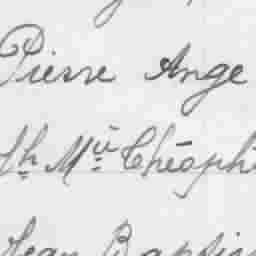 Pierre Ange
Jh Mie Théophi
Jean Baptis